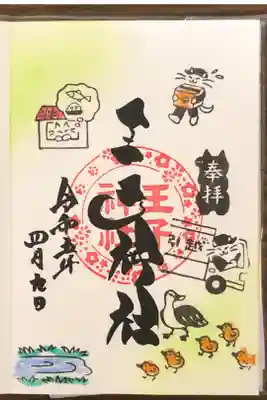 奉拝
引越
王子神社
王子
神社
令和
四月九日